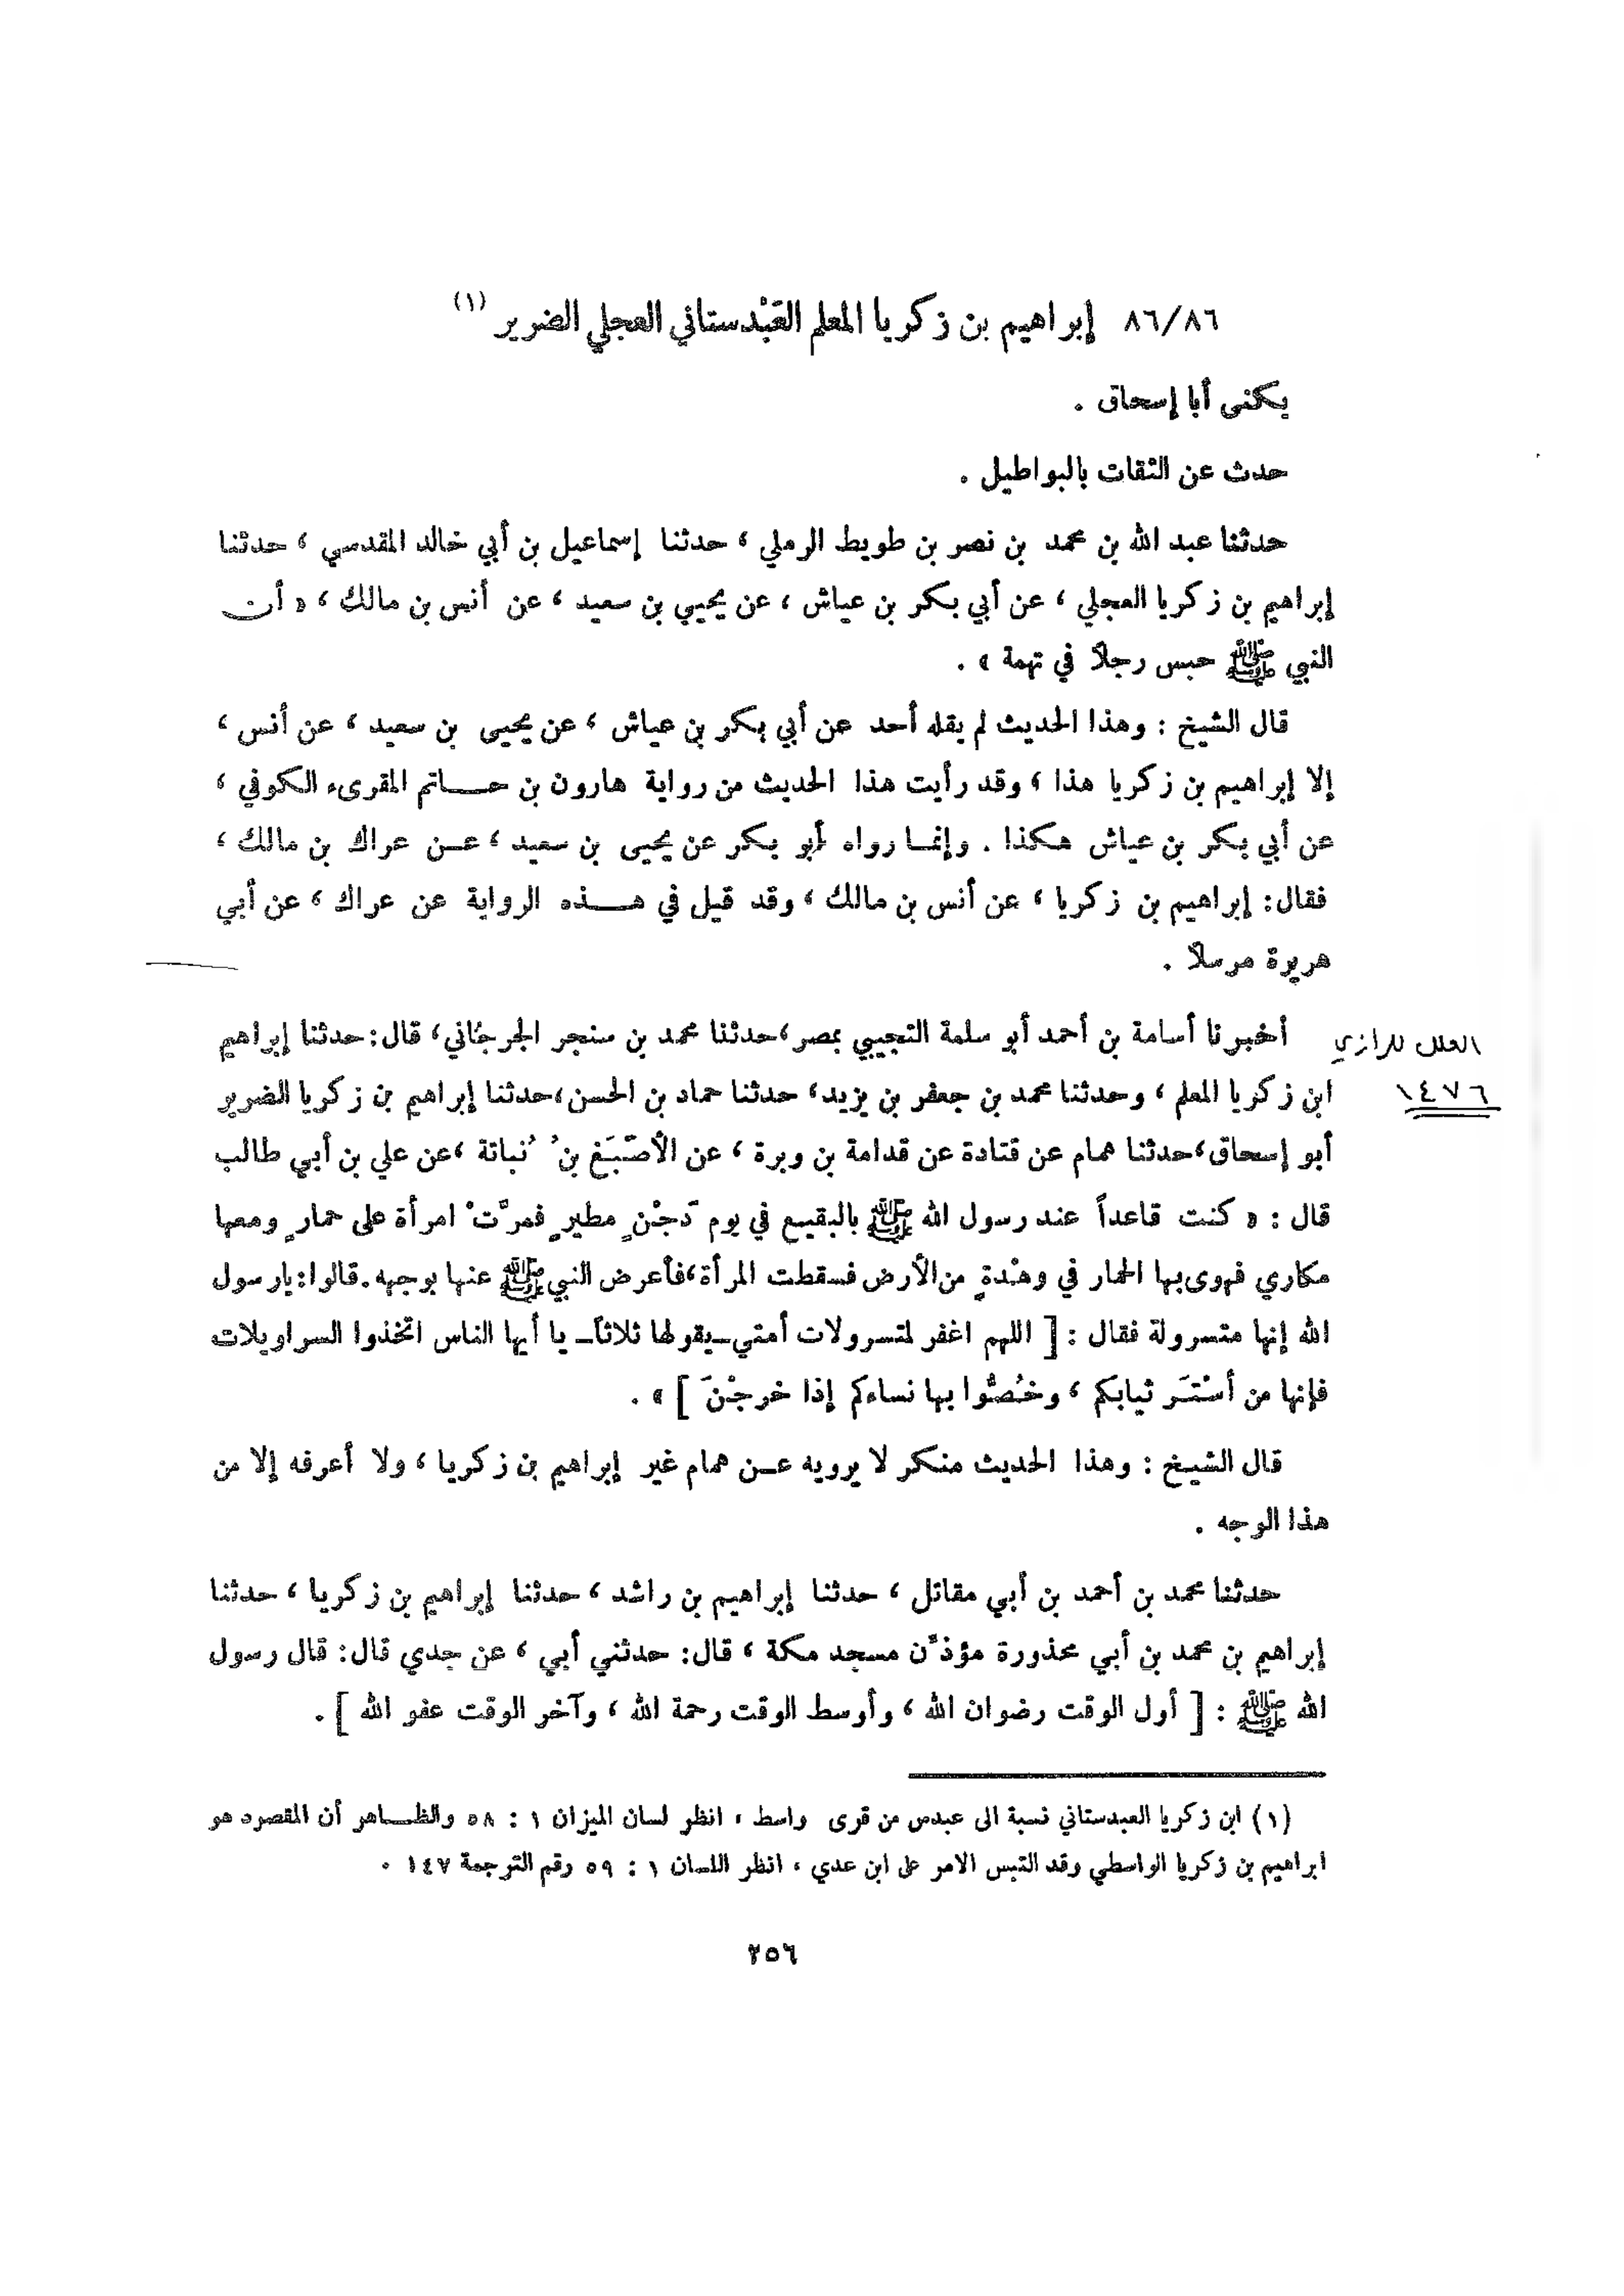 ٨٦/٨٦ إبراهيم بن زكريا المعلم العَبْدستاني العجلي الضرير (١)
يكنى أبا إسحاق .
حدث عن الثقات بالبواطيل .
حدثنا عبد الله بن محمد بن نصر بن طويط الرملي ، حدثنا إسماعيل بن أبي خالد المقدسي ، حدثنا
إبراهيم بن زكريا العجلي ، عن أبي بكر بن عياش ، عن يحيي بن سعيد ، عن أنس بن مالك ، « أن
النبي ﷺ حبس رجلاً في تهمة » .
قال الشيخ : وهذا الحديث لم يقله أحد عن أبي بكر بن عياش ، عن يحيى بن سعيد ، عن أنس ،
إلا إبراهيم بن زكريا هذا ، وقد رأيت هذا الحديث من رواية هارون بن حـاتم المقرىء الكوفي ،
عن أبي بكر بن عياش هكذا . وإنمـا رواه أبو بكر عن يحيى بن سعيد ، عـن عراك بن مالك ،
فقال: إبراهيم بن زكريا ، عن أنس بن مالك ، وقد قيل في هـذه الرواية عن عراك ، عن أبي
هريرة مرسلاً .
أخبرنا أسامة بن أحمد أبو سلمة التجيبي بمصر، حدثنا محمد بن سنجر الجرجاني، قال: حدثنا إبراهيم
العلل للرازي
ابن زكريا المعلم ، وحدثنا محمد بن جعفر بن يزيد، حدثنا حماد بن الحسن، حدثنا إبراهيم بن زكريا الضرير
١٤٧٦
أبو إسحاق، حدثنا همام عن قتادة عن قدامة بن وبرة ، عن الأَصْبَغ بنُ نُباتة ، عن علي بن أبي طالب
قال : « كنت قاعداً عند رسول الله ﷺ بالبقيع في يوم دَجْنٍ مطيرٍ فمرَّتْ امرأة على حمارٍ ومعها
مكاري فهوى بها الحمار في وهْدةٍ من الأرض فسقطت المرأة، فأعرض النبي ﷺ عنها بوجهه. قالوا: يارسول
الله إنها متسرولة فقال : [ اللهم اغفر لمتسرولات أمتي ـ يقولها ثلاثاً ـ يا أيها الناس اتخذوا السراويلات
فإنها من أسْتَر ثيابكم ، وخُصُّوا بها نساءكم إذا خرجْنَ ] » .
قال الشيخ : وهذا الحديث منكر لا يرويه عـن همام غير إبراهيم بن زكريا ، ولا أعرفه إلا من
هذا الوجه .
حدثنا محمد بن أحمد بن أبي مقاتل ، حدثنا إبراهيم بن راشد ، حدثنا إبراهيم بن زكريا ، حدثنا
إبراهيم بن محمد بن أبي محذورة مؤذّن مسجد مكة ، قال: حدثني أبي ، عن جدي قال: قال رسول
الله ﷺ : [ أول الوقت رضوان الله ، وأوسط الوقت رحمة الله ، وآخر الوقت عفو الله ] .
(١) ابن زكريا العبدستاني نسبة الى عبدس من قرى واسط ، انظر لسان الميزان ١ : ٥٨ والظـاهر أن المقصود هو
ابراهيم بن زكريا الواسطي وقد التبس الامر على ابن عدي ، انظر اللسان ١ : ٥٩ رقم الترجمة ١٤٧ .
٢٥٦